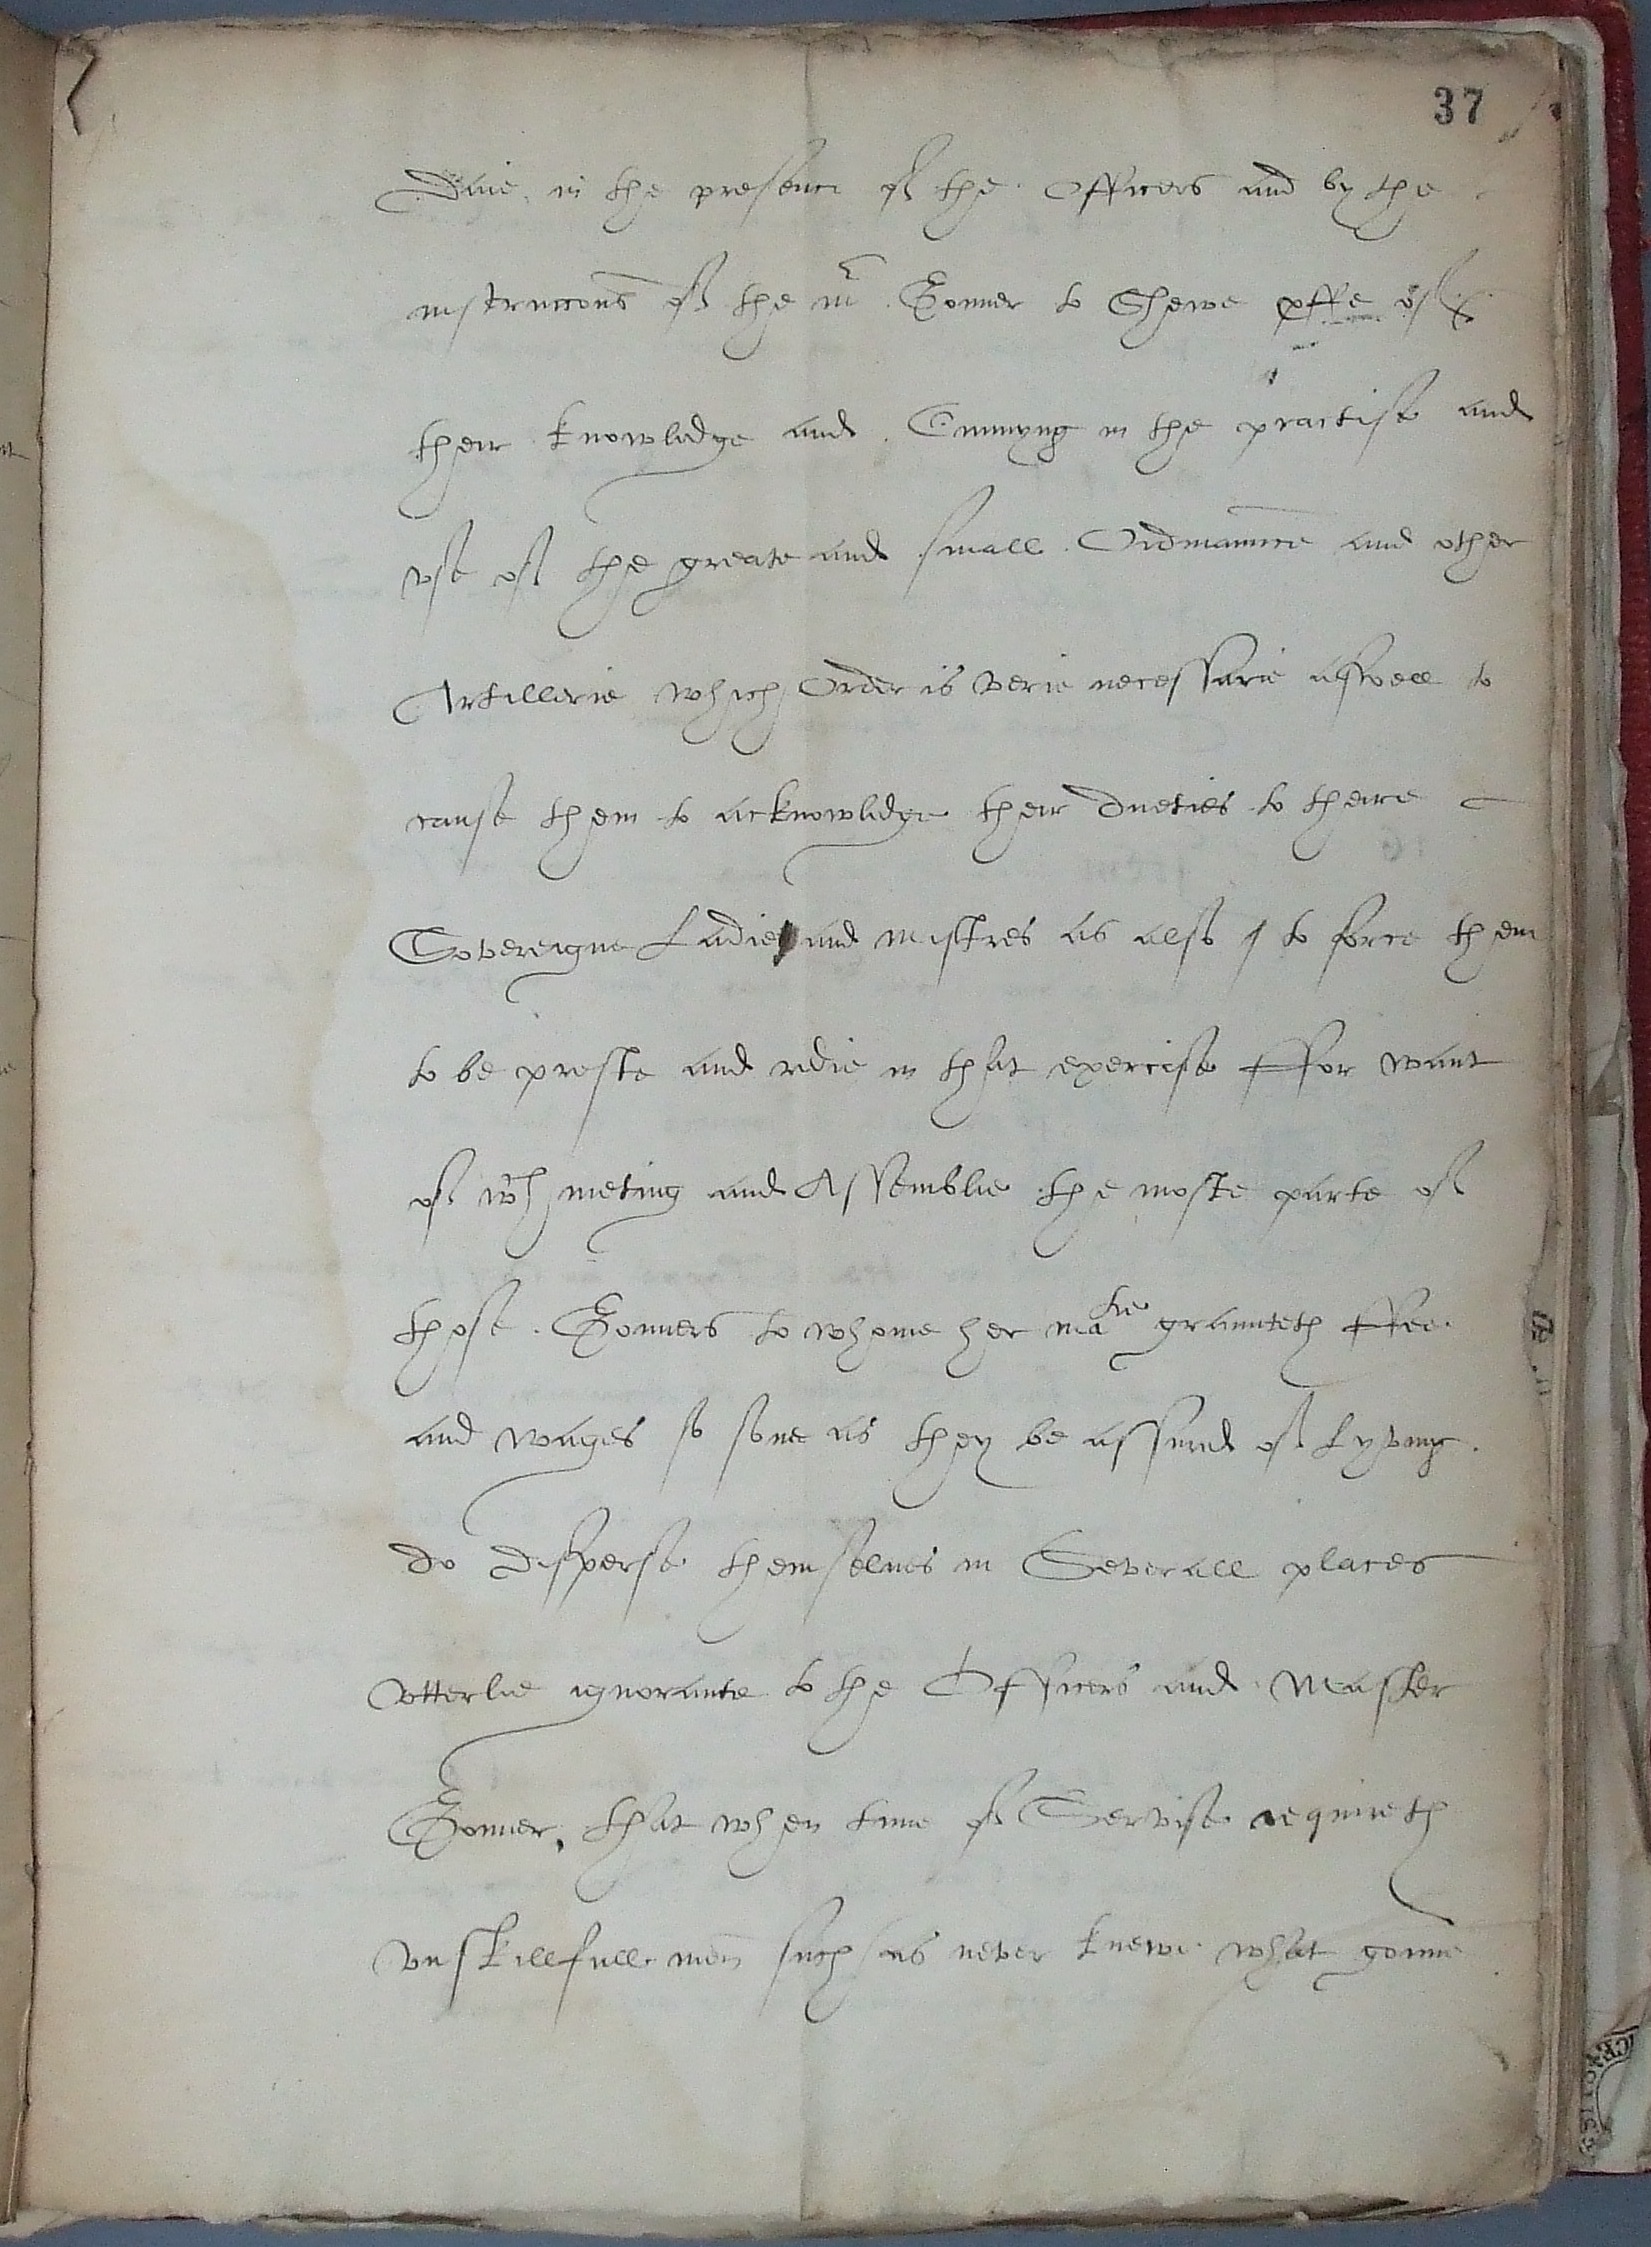 37
Daie in the presence of the Officers and by the
instruccons of the mr Gonner to Shewe
their knowledge and Cunnyng in the practise and
vse of the greate and small Ordinaunce and other
Artillerie which Order is verie necessarie aswell to
cause them to acknowledge their dueties to theire
Sovereigne Ladie and mistres as also to force them
to be preste and redie in that exercise ffor want
of wch meting and Assemblie the moste parte of
those Gonners to whome her matie graunteth ffee
and wages so sone as they be assured of Lyving
do disperse themselues in Severall places
vtterlie ignorante to the Officers and Master
Gonner, that when time of Servise requireth
vnskillfull men such as never knewe what gonne